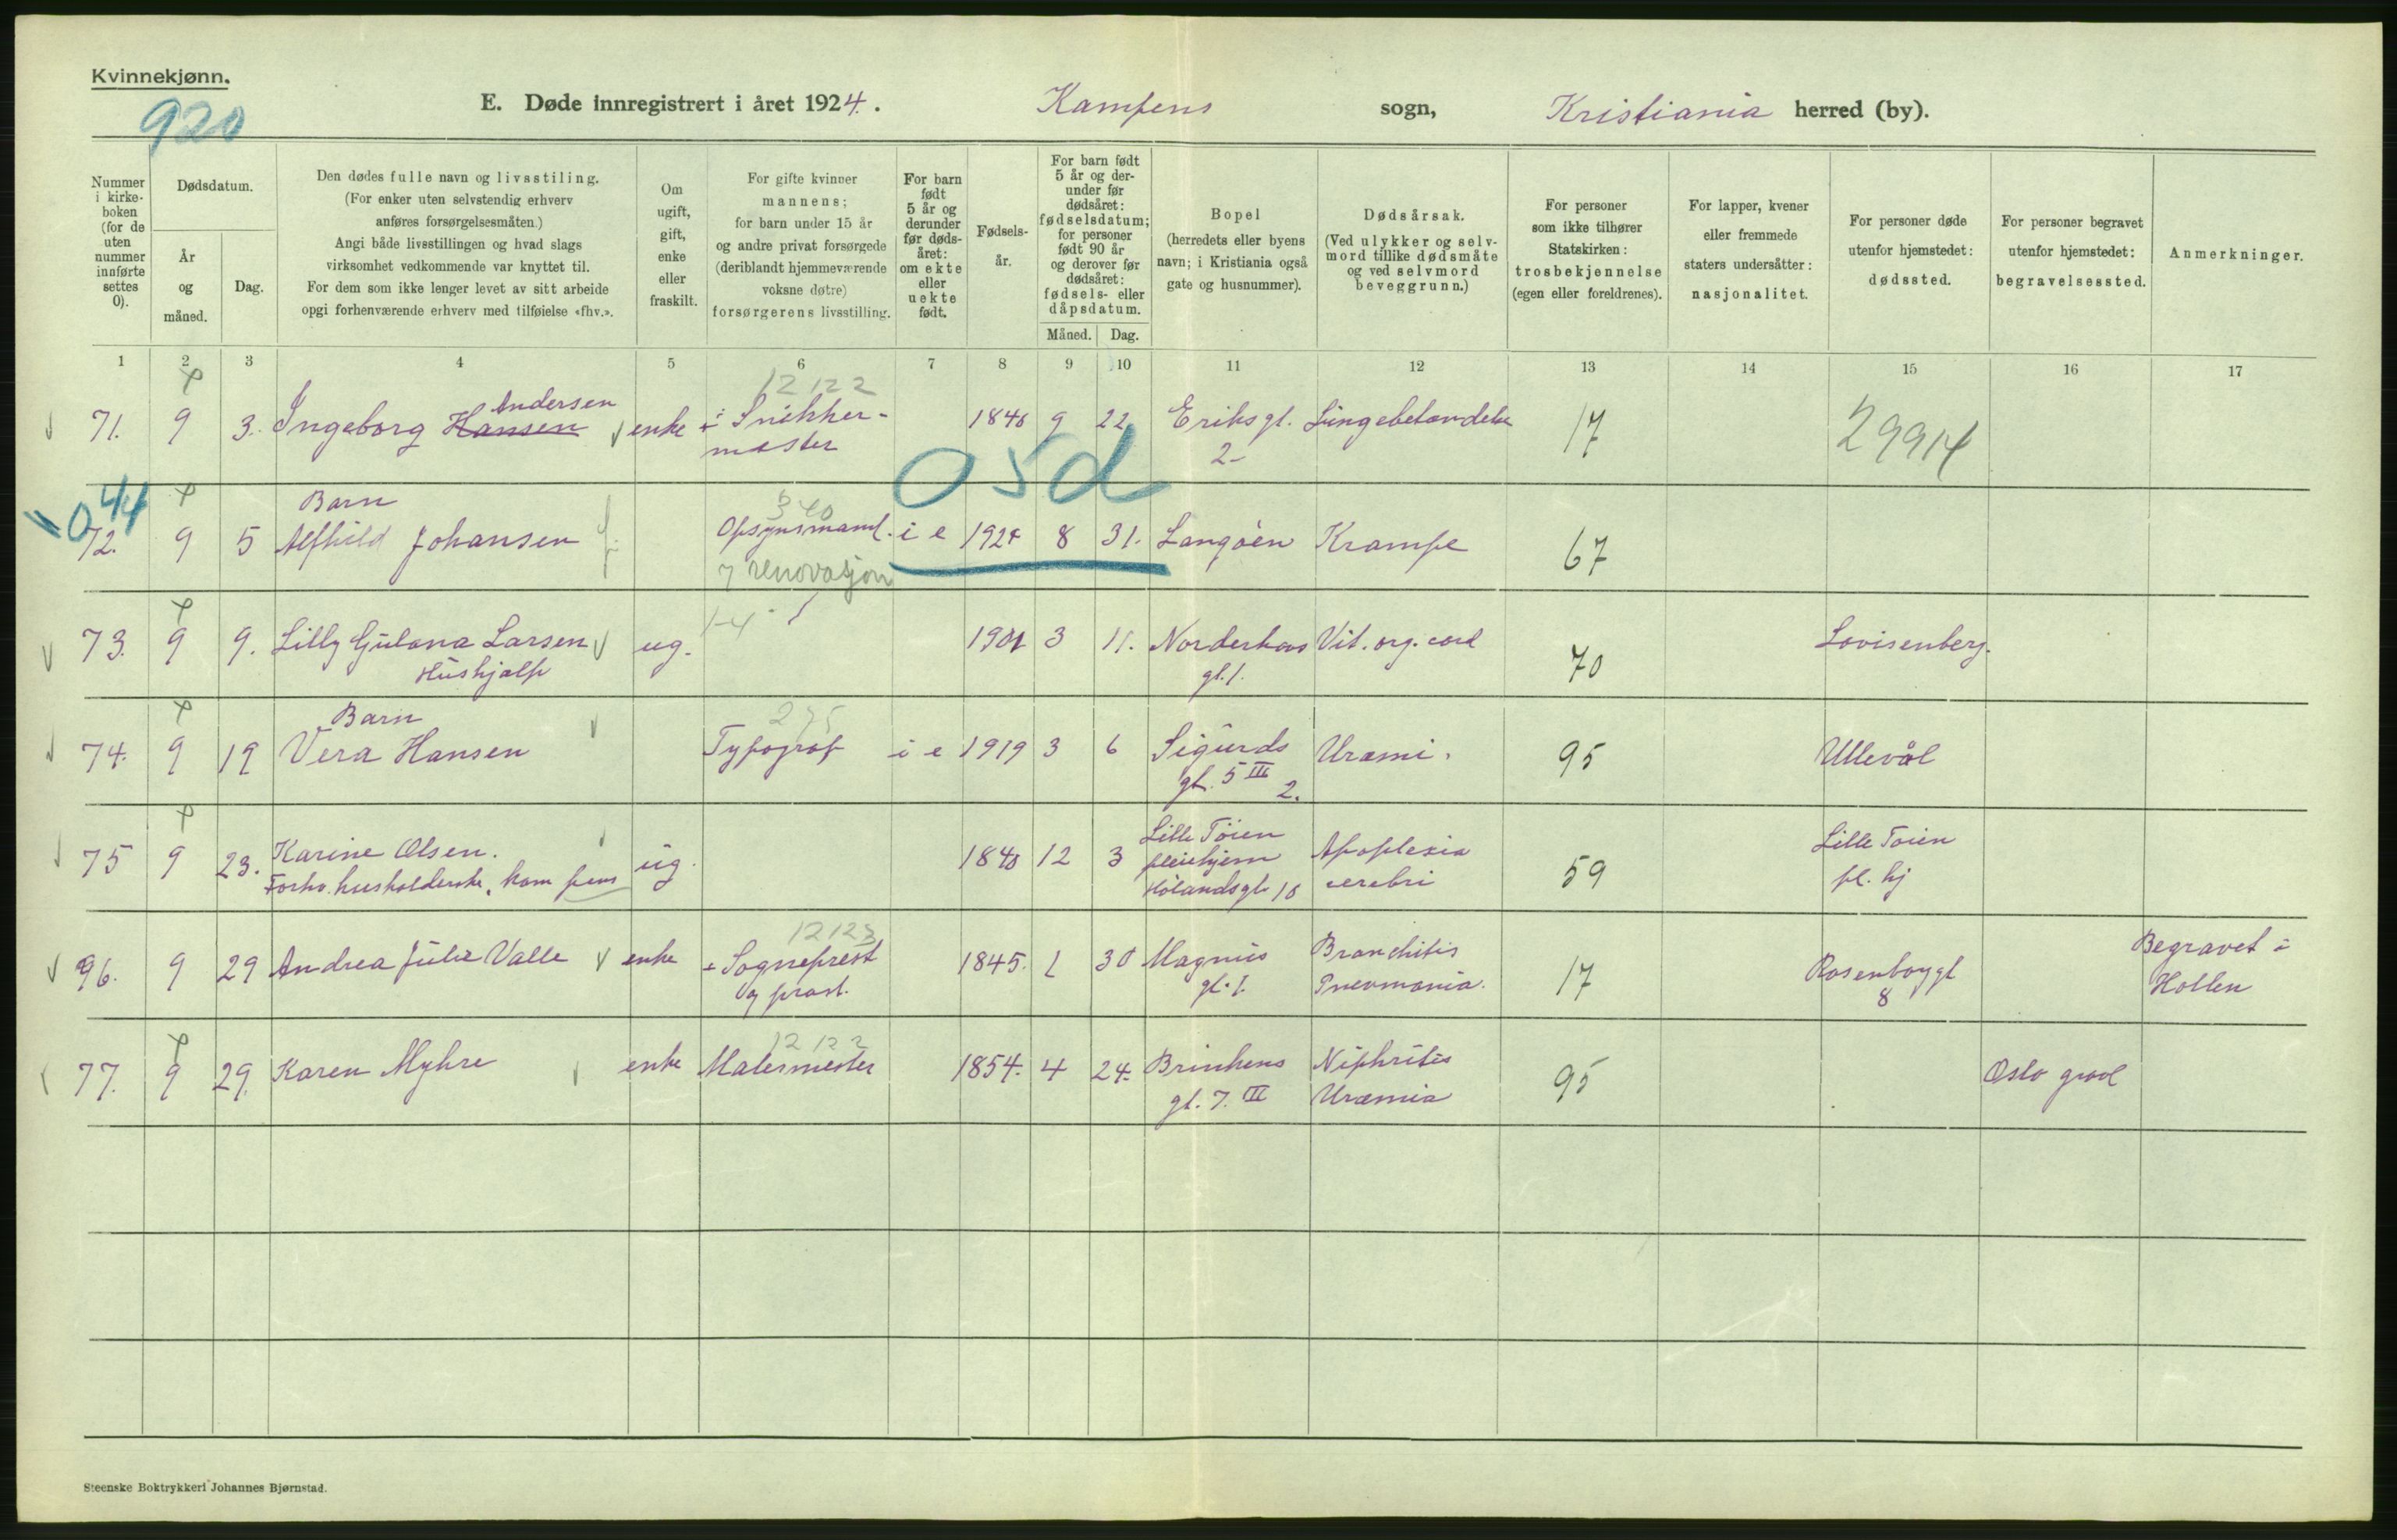 Kvinnekjønn.
920
E. Døde innregistrert i året 1924. Kampens sogn, Kristiania herred (by).
Nummer i kirke-boken (for de uten nummer innførte settes 0).
Dødsdatum.
År og måned.
Dag.
Den dødes fulle navn og livsstiling.
(For enker uten selvstendig erhverv
anføres forsørgelsesmåten.)
Angi både livsstillingen og hvad slags
virksomhet vedkommende var knyttet til.
For dem som ikke lenger levet av sitt arbeide
opgi forhenværende erhverv med tilføielse «fhv.».
Om ugift, gift, enke eller fraskilt.
For gifte kvinner
mannens;
for barn under 15 år
og andre privat forsørgede
(deriblandt hjemmeværende
voksne døtre)
forsørgerens livsstilling.
For barn født 5 år og derunder før døds-året: om ekte eller uekte født.
Fødsels-år.
For barn født 5 år og der-under før dødsåret: fødselsdatum; for personer født 90 år og derover før dødsåret: fødsels- eller dåpsdatum.
Måned. Dag.
Bopel
(herredets eller byens
navn; i Kristiania også
gate og husnummer).
Dødsårsak.
(Ved ulykker og selv-
mord tillike dødsmåte
og ved selvmord
beveggrunn.)
For personer
som ikke tilhører
Statskirken:
trosbekjennelse
(egen eller foreldrenes).
For lapper, kvener
eller fremmede
staters undersåtter:
nasjonalitet.
For personer døde
utenfor hjemstedet:
dødssted.
For personer begravet
utenfor hjemstedet:
begravelsessted.
Anmerkninger.
1 2 3 4 5 6 7 8 9 10 11 12 13 14 15 16 17
12 122
Andersen
71. 9 3. Ingeborg Hansen enke Snekker- 1840 9 22 Eriksgt. Lungebetændelse 17 29914
mester 2
05d
044
Barn 340
72. 9 5 Alfhild Johansen Opsynsmand. i e 1924 8 31. Langøen Krampe 67
renovasjon
1-4
73. 9 9. Lilly Gulana Larsen ug. 1901 3 11. Norderhovs Vit. org. cord 70 Lovisenberg.
Hushjælp gt. 1.
Barn 275
74. 9 19 Vera Hansen Typograf i e 1919 3 6 Sigurds Uræmi. 95 Ullevål
gt. 5 III 2.
75 9 23. Karine Olsen. ug. 1840 12 3 Lille Tøien Apoplexia 59 Lille Tøien
Forhv. husholderske, kom pens pleiehjem cerebri pl. hj
Hølandsgt 18
12123
96. 9 29 Andrea Julie Valle enke Sogneprest 1845. 1 30 Magnus Bronchitis 17 Rosenborggt Begravet i
og prost. gt. 1. Pneumonia. 8 Hollen
12 122
77. 9 29. Karen Myhre enke Malermester 1854. 4 24. Brinkens Nephritis 95 Oslo gravl
gt. 7. III Uræmia
Steenske Boktrykkeri Johannes Bjørnstad.